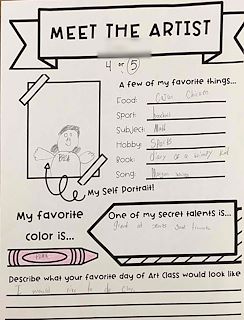 MEET THE ARTIST
4 or 5
A few of my favorite things...
Food:
Sport: baseball
Subject: Math
Hobby: Sports
Book: diary of a wimpy kid
Song:
My Self Portrait!
My favorite
color is...
One of my secret talents is...
good at
Describe what your favorite day of Art Class would look like
I would like to do clay